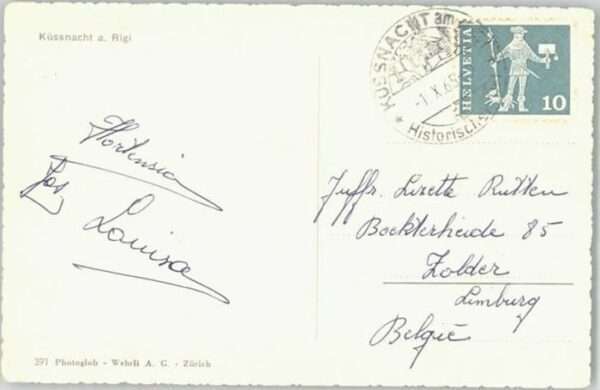 Küssnacht a. Rigi
KÜSSNACHT am
-1.X.65
Historisch
HELVETIA
10
Hortensia
Jos
Louisa
Juffr. Lizette Rutten
Bockterheide 85
Zolder
Limburg
België
297 Photoglob - Wehrli A. G. - Zürich